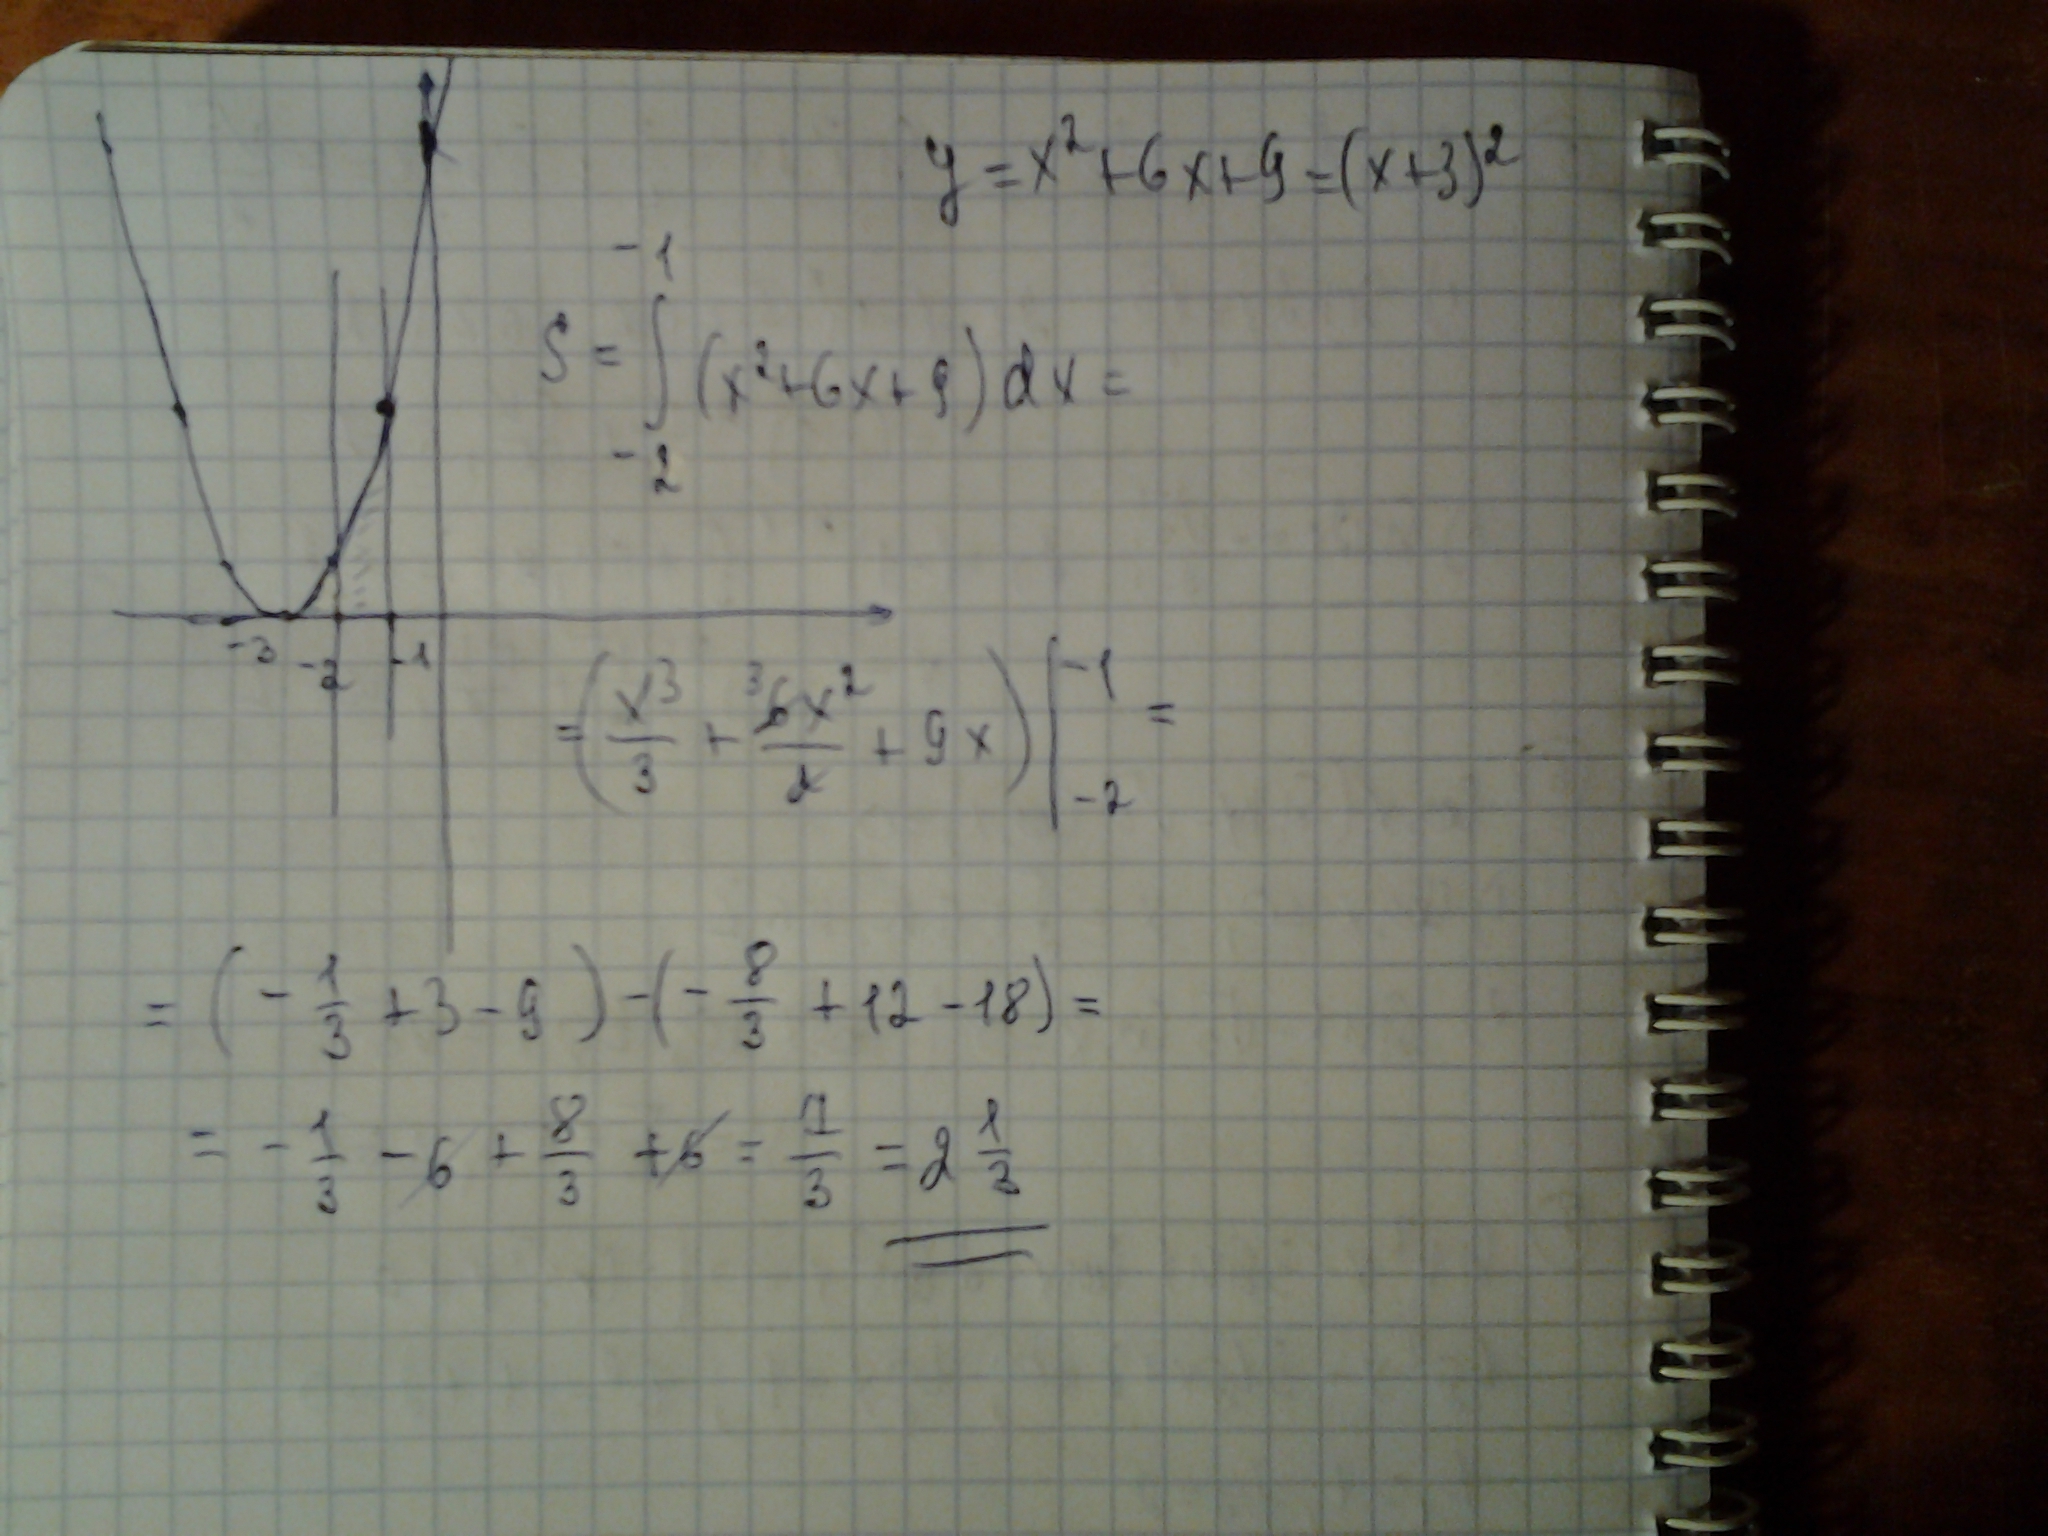 y = x² + 6x + 9 = (x+3)²
S = ∫_{-2}^{-1} (x² + 6x + 9) dx =
-3 -2 -1
= (x³/3 + ³6x²/2 + 9x) |_{-2}^{-1} =
= (-1/3 + 3 - 9) - (-8/3 + 12 - 18) =
= -1/3 - 6 + 8/3 + 6 = 7/3 = 2 1/3